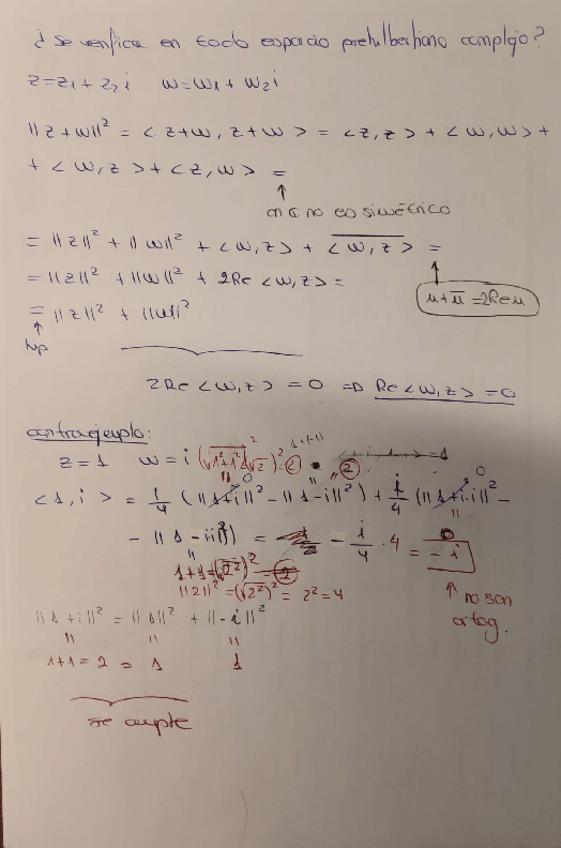 ¿ se verifica en todo espacio prehilbertiano complejo?
z=z₁+z₂i w=w₁+w₂i
||z+w||² = <z+w, z+w> = <z,z> + <w,w> +
+ <w,z> + <z,w> =
↑
en ℂ no es simétrico
= ||z||² + ||w||² + <w,z> + \overline{<w,z>} =
= ||z||² + ||w||² + 2Re <w,z> =
u+ū=2Re u
= ||z||² + ||w||²
↑
hp
2Re <w,z> = 0 ⇒ Re <w,z> = 0
contraejemplo:
z=1 w=i (√1²+1²)² (√2)²=2 2
<1,i> = 1/4 (||1+i||² - ||1-i||²) + i/4 (||1+i.i||² -
- ||1-ii||²) = - i/4 · 4 = -i
1+1=(√2²)² = 2
||2||²=(√2²)² = 2²=4
↑ no son
ortog.
||1+i||² = ||1||² + ||-i||²
1+1=2 = 1 1
se cumple